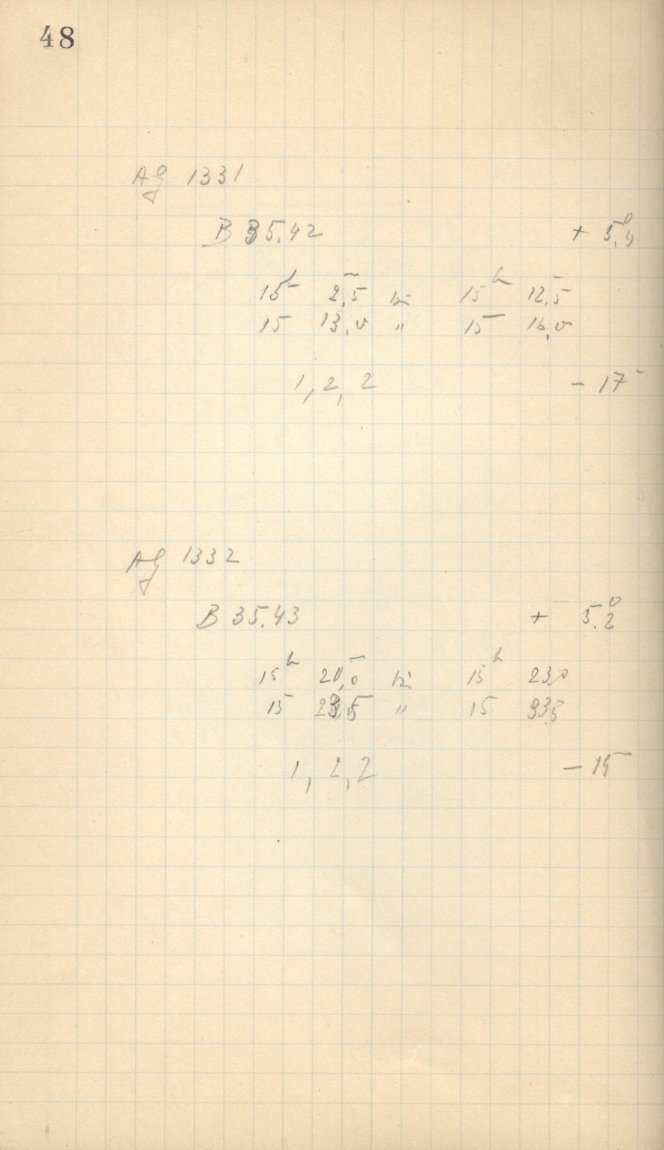 48
AG 1331
B 35.42 + 5.4°
15ʰ 2,5 bis 15ʰ 12,5
15 13,0 " 15 16,0
1, 2, 2 - 17
AG 1332
B 35.43 + 5.2°
15ʰ 20,0 bis 15ʰ 23,0
15 23,5 " 15 33,5
1, 2, 2 - 15